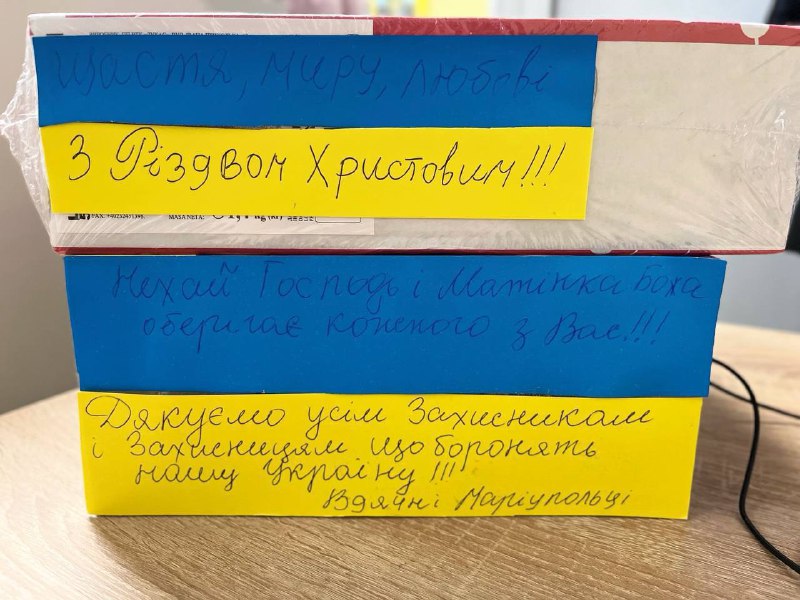 Щастя, миру, любові
З Різдвом Христовим!!!
FAX:+40232471398,
MASA NETA:
kg (кг)
Нехай Господь і Матінка Божа
оберигає кожного з Вас!!!
Дякуємо усім Захисникам
і Захисницям що боронять
нашу Україну !!!
Вдячні Маріупольці